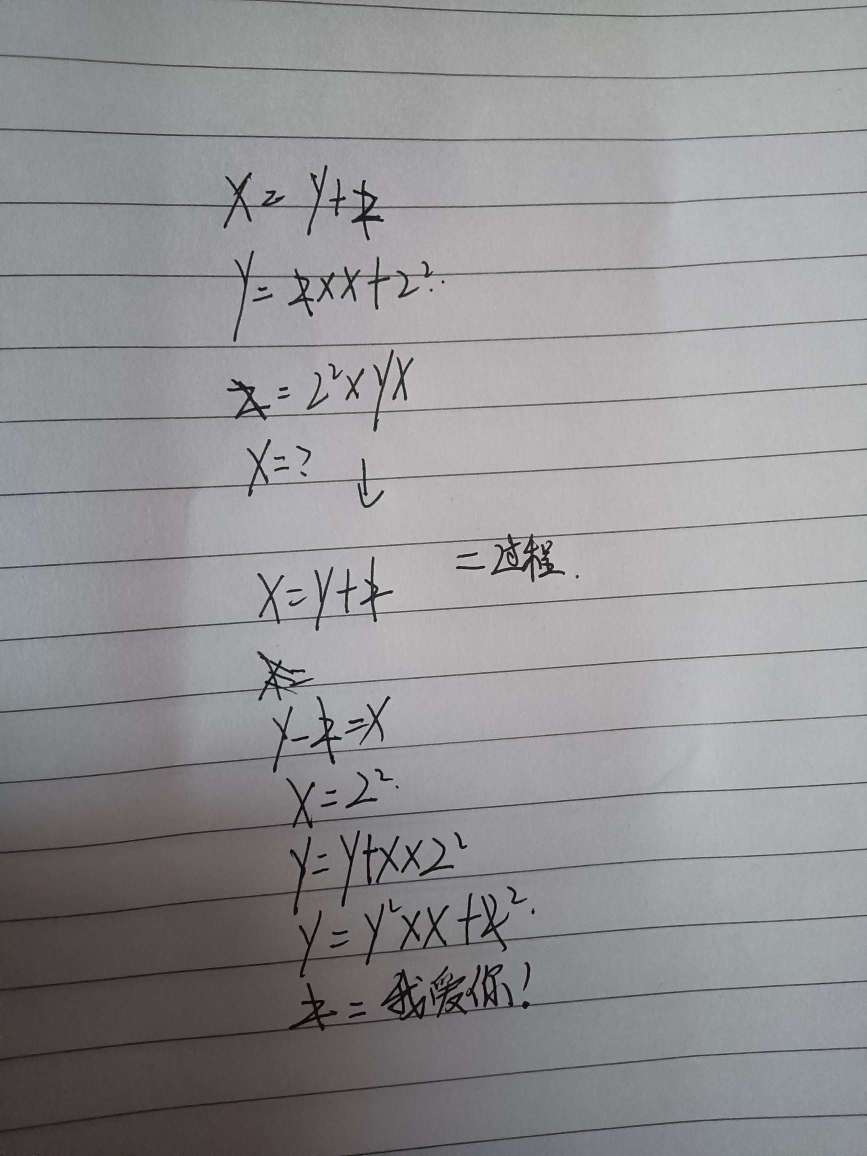 X=Y+z
Y=z×X+2².
z=2²×YX
X=?
↓
X=Y+z =过程.
Y-z=X
X=2².
Y=Y+X×2²
Y=Y²×X+z².
z=我爱你!